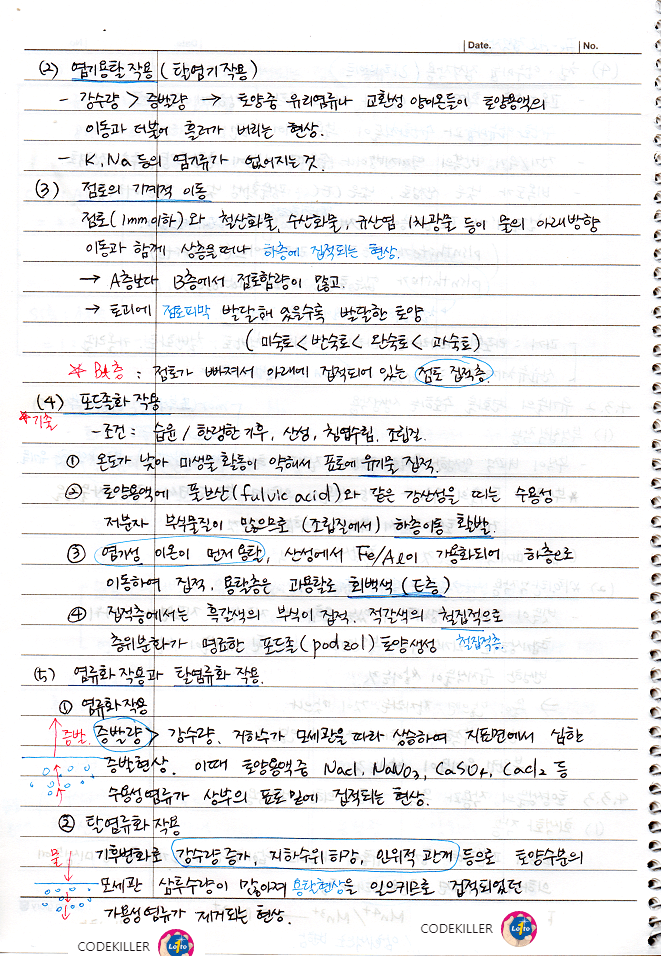 Date. No.
(2) 염기용탈작용 (탈염기작용)
- 강수량 > 증발량 → 토양중 유리염류나 교환성 양이온들이 토양용액의
이동과 더불어 흘러가 버리는 현상.
- K, Na 등의 염기류가 없어지는 것.
(3) 점토의 기계적 이동
점토(1mm이하)와 철산화물, 수산화물, 규산염 1차광물 등이 물의 아래방향
이동과 함께 상층을 떠나 하층에 집적되는 현상.
→ A층보다 B층에서 점토함량이 많고.
→ 토괴에 점토피막 발달해 있을수록 발달한 토양
(미숙토 < 반숙토 < 완숙토 < 과숙토)
* Bt층 : 점토가 빠져서 아래에 집적되어 있는 점토 집적층.
(4) 포드졸화 작용
*기출
- 조건 : 습윤 / 한랭한 기후, 산성, 침엽수림, 조립질.
① 온도가 낮아 미생물 활동이 약해서 표토에 유기물 집적.
② 토양용액에 풀브산(fulvic acid)와 같은 강산성을 띠는 수용성
저분자 부식물질이 많으므로 (조립질에서) 하층이동 활발.
③ 염기성 이온이 먼저 용탈, 산성에서 Fe/Al이 가용화되어 하층으로
이동하여 집적. 용탈층은 과용탈로 회백색 (E층)
④ 집적층에서는 흑갈색의 부식이 집적. 적갈색의 철집적으로
층위분화가 명료한 포드졸(podzol) 토양생성 철집적층.
(5) 염류화 작용과 탈염류화 작용.
① 염류화작용
증발. 증발량 > 강수량. 지하수가 모세관을 따라 상승하여 지표면에서 심한
증발현상. 이때 토양용액중 NaCl, NaNO3, CaSO4, CaCl2 등
수용성염류가 상부의 표토밑에 집적되는 현상.
② 탈염류화작용
물 기후변화로 강수량 증가, 지하수위 하강, 인위적 관개 등으로 토양수분의
모세관 삼투수량이 많아져 용탈현상을 일으키므로 집적되었던
가용성염류가 제거되는 현상.
CODEKILLER Lotto
CODEKILLER Lotto